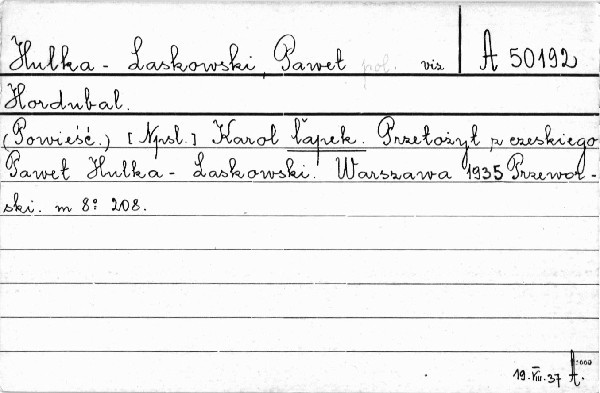 Hulka - Laskowski, Paweł pol. viz A 50192
Hordubal.
(Powieść.) [Npsl.] Karol Čapek. Przełożył z czeskiego
Paweł Hulka - Laskowski. Warszawa 1935 Przewor-
ski. m 8º 208.
19.VIII.37 A.